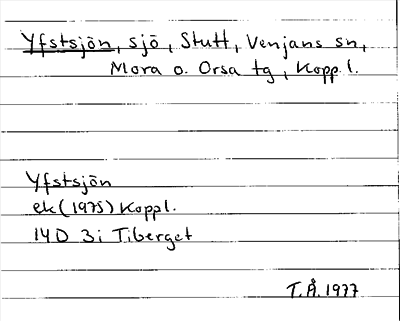 Yfstsjön, sjö, Stutt, Venjans sn,
Mora o. Orsa tg, Kopp. l.
Yfstsjön
ek (1975) Koppl.
14D 3i Tiberget
T.Å. 1977